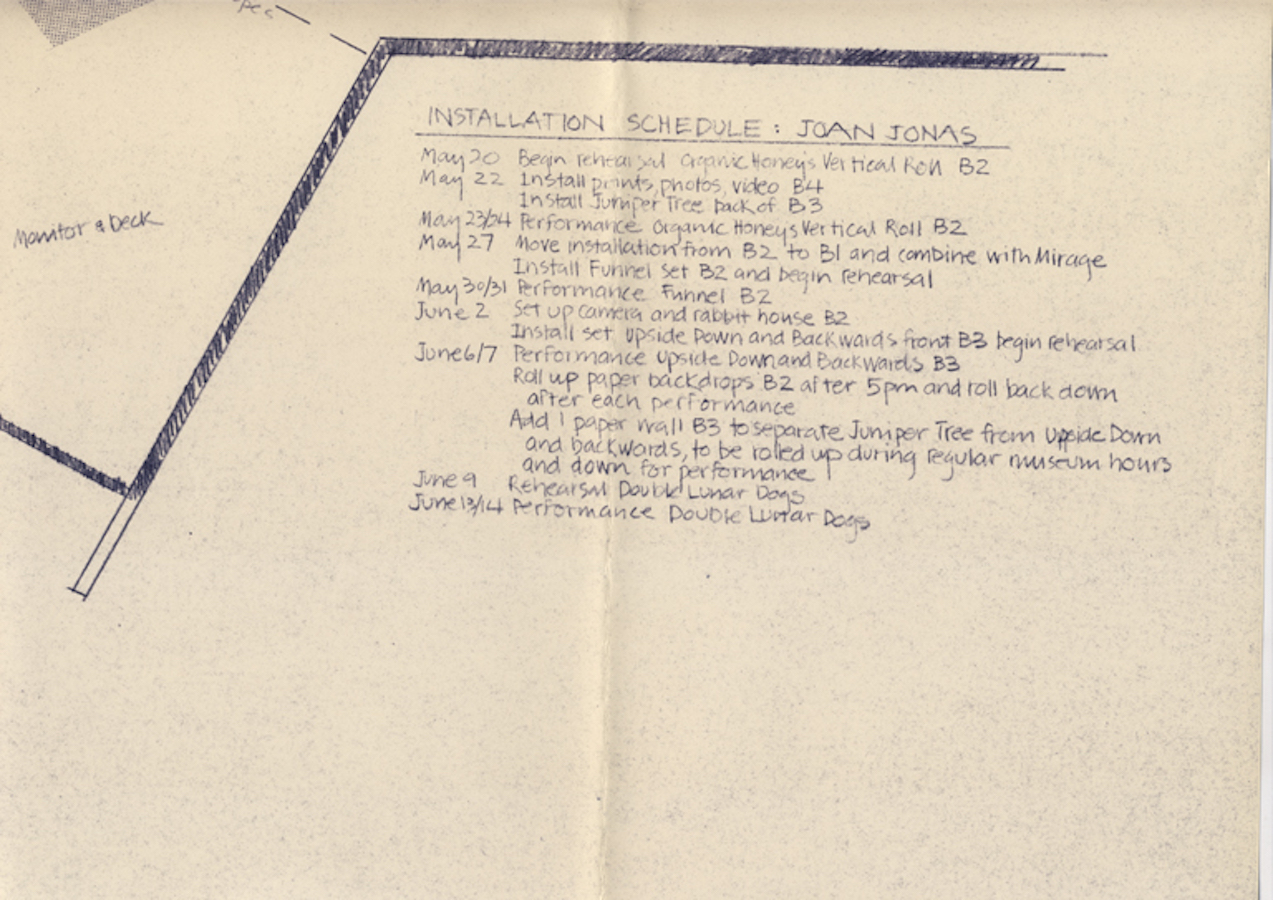 Monitor & Deck
INSTALLATION SCHEDULE : JOAN JONAS
May 20 Begin rehearsal Organic Honey's Vertical Roll B2
May 22 Install prints, photos, video B4
Install Juniper Tree back of B3
May 23/24 Performance Organic Honey's Vertical Roll B2
May 27 Move installation from B2 to B1 and combine with Mirage
Install Funnel set B2 and begin rehearsal
May 30/31 Performance Funnel B2
June 2 Set up camera and rabbit house B2
Install set Upside Down and Backwards front B3 begin rehearsal
June 6/7 Performance Upside Down and Backwards B3
Roll up paper backdrops B2 after 5pm and roll back down
after each performance
Add 1 paper wall B3 to separate Juniper Tree from Upside Down
and backwards, to be rolled up during regular museum hours
and down for performance
June 9 Rehearsal Double Lunar Dogs
June 13/14 Performance Double Lunar Dogs